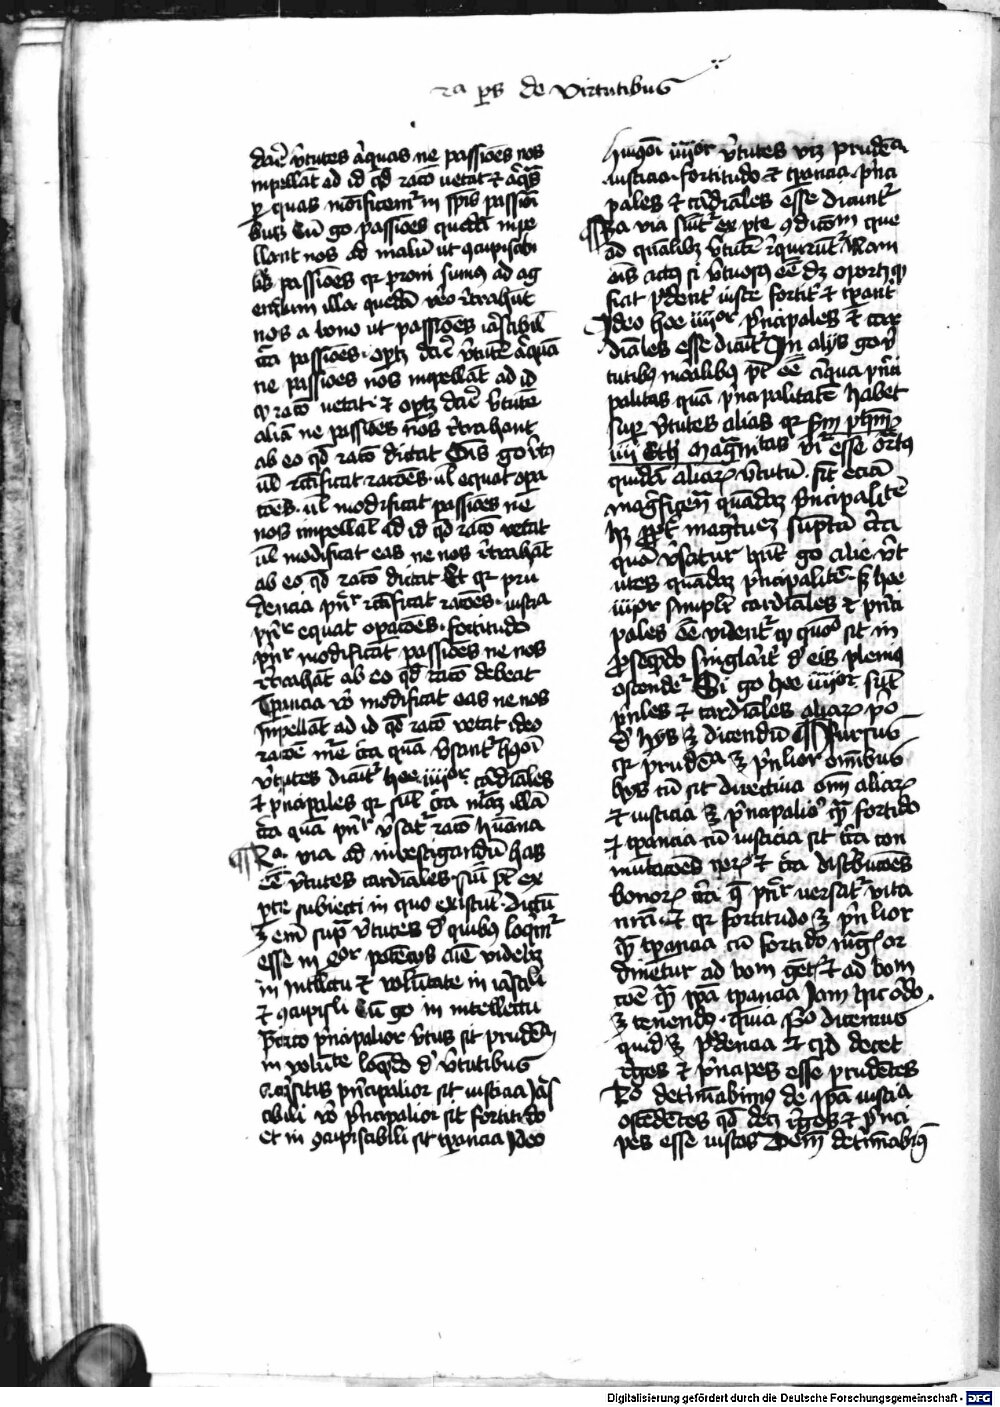 2a ps de virtutibus
dare virtutes a quas ne passiones nos
impellant ad id quod racio vetat et a quas
per quas modificemur in ipsis passioni
bus Cum ergo passiones quedam impe
llant nos ad malum ut concupiscibi
les passiones quia proni sumus ad ag
endum illa quedam vero retrahunt
nos a bono ut passiones irascibiles
circa passiones oportet dare virtutem aliquam
ne passiones nos impellant ad id
quod racio vetat et oportet dare virtutem
aliam ne passiones nos retrahant
ab eo quod racio dictat Omnis ergo virtus
vel rectificat raciones vel equat opera
ciones vel modificat passiones ne
nos impellant ad id quod racio vetat
vel modificat eas ne nos retrahant
ab eo quod racio dictat Et quia pru
dencia rectificat raciones iusticia
equat operaciones fortitudo
modificat passiones ne nos
retrahant ab eo quod racio debeat
Temperancia vero modificat eas ne nos
impellant ad id quod racio vetat ideo
racione materie circa quam versantur huiusmodi
virtutes dicuntur hee iiiior cardinales
et principales quia sunt circa materiam illam
circa quam versatur racio humana
2a via ad investigandum has
esse virtutes cardinales sumi potest ex
parte subiecti in quo existunt Dictum
est enim supra virtutes de quibus loquimur
esse in potenciis anime videlicet
in intellectu et voluntate in irascibili
et concupiscibili Cum ergo in intellectu
principalior virtus sit prudencia
in voluntate loquendo de virtutibus
acquisitis principalior sit iusticia Iras
cibili vero principalior sit fortitudo
et in concupiscibili sit temperancia Ideo
huiusmodi iiiior virtutes videlicet prudencia
iusticia fortitudo et temperancia princi
pales et cardinales esse dicuntur
3a via sumitur ex parte condicionum que
ad quamlibet virtutem requiruntur Nam
omnis actus si virtuosus esse debet oportet quod
fiat prudenter iuste fortiter et temperanter
Ideo hee iiiior principales et car
dinales esse dicuntur In aliis ergo vir
tutibus moralibus potest esse aliqua princi
palitas quam principalitatem habet
super virtutes alias quia secundum philosophum
iiii Eth magnanimitas videtur esse ornatus
quidam aliarum virtutum sicut eciam
magnificencia quamdam principalitatem
habet propter magnitudinem sumptuum circa
quam versatur habent ergo alie virt
utes quamdam principalitatem sed hee
iiiior simpliciter cardinales et princi
pales esse videntur quod quomodo sit in
prosequendo singulariter de eis plenius
ostendetur Si ergo hee iiiior sunt
principales et cardinales aliarum primo
de hiis est dicendum Rursus
quia prudencia est principalior omnibus
hiis cum sit directiva omnium aliarum
et iusticia est principalior quam fortitudo
et temperancia cum iusticia sit circa com
mutaciones rerum et circa distribuciones
bonorum circa que versatur vita
nostra et quia fortitudo est principalior
quam temperancia cum fortitudo magis or
dinetur ad bonum gentis et ad bonum
commune quam ipsa temperancia Iam hic ordo
est tenendus quia primo dicemus
quid est prudencia et quod decet
reges et principes esse prudentes
2o determinabimus de ipsa iusticia
ostendentes quod decet reges et princi
pes esse iustos Deinde determinabimus
Digitalisierung gefördert durch die Deutsche Forschungsgemeinschaft - DFG